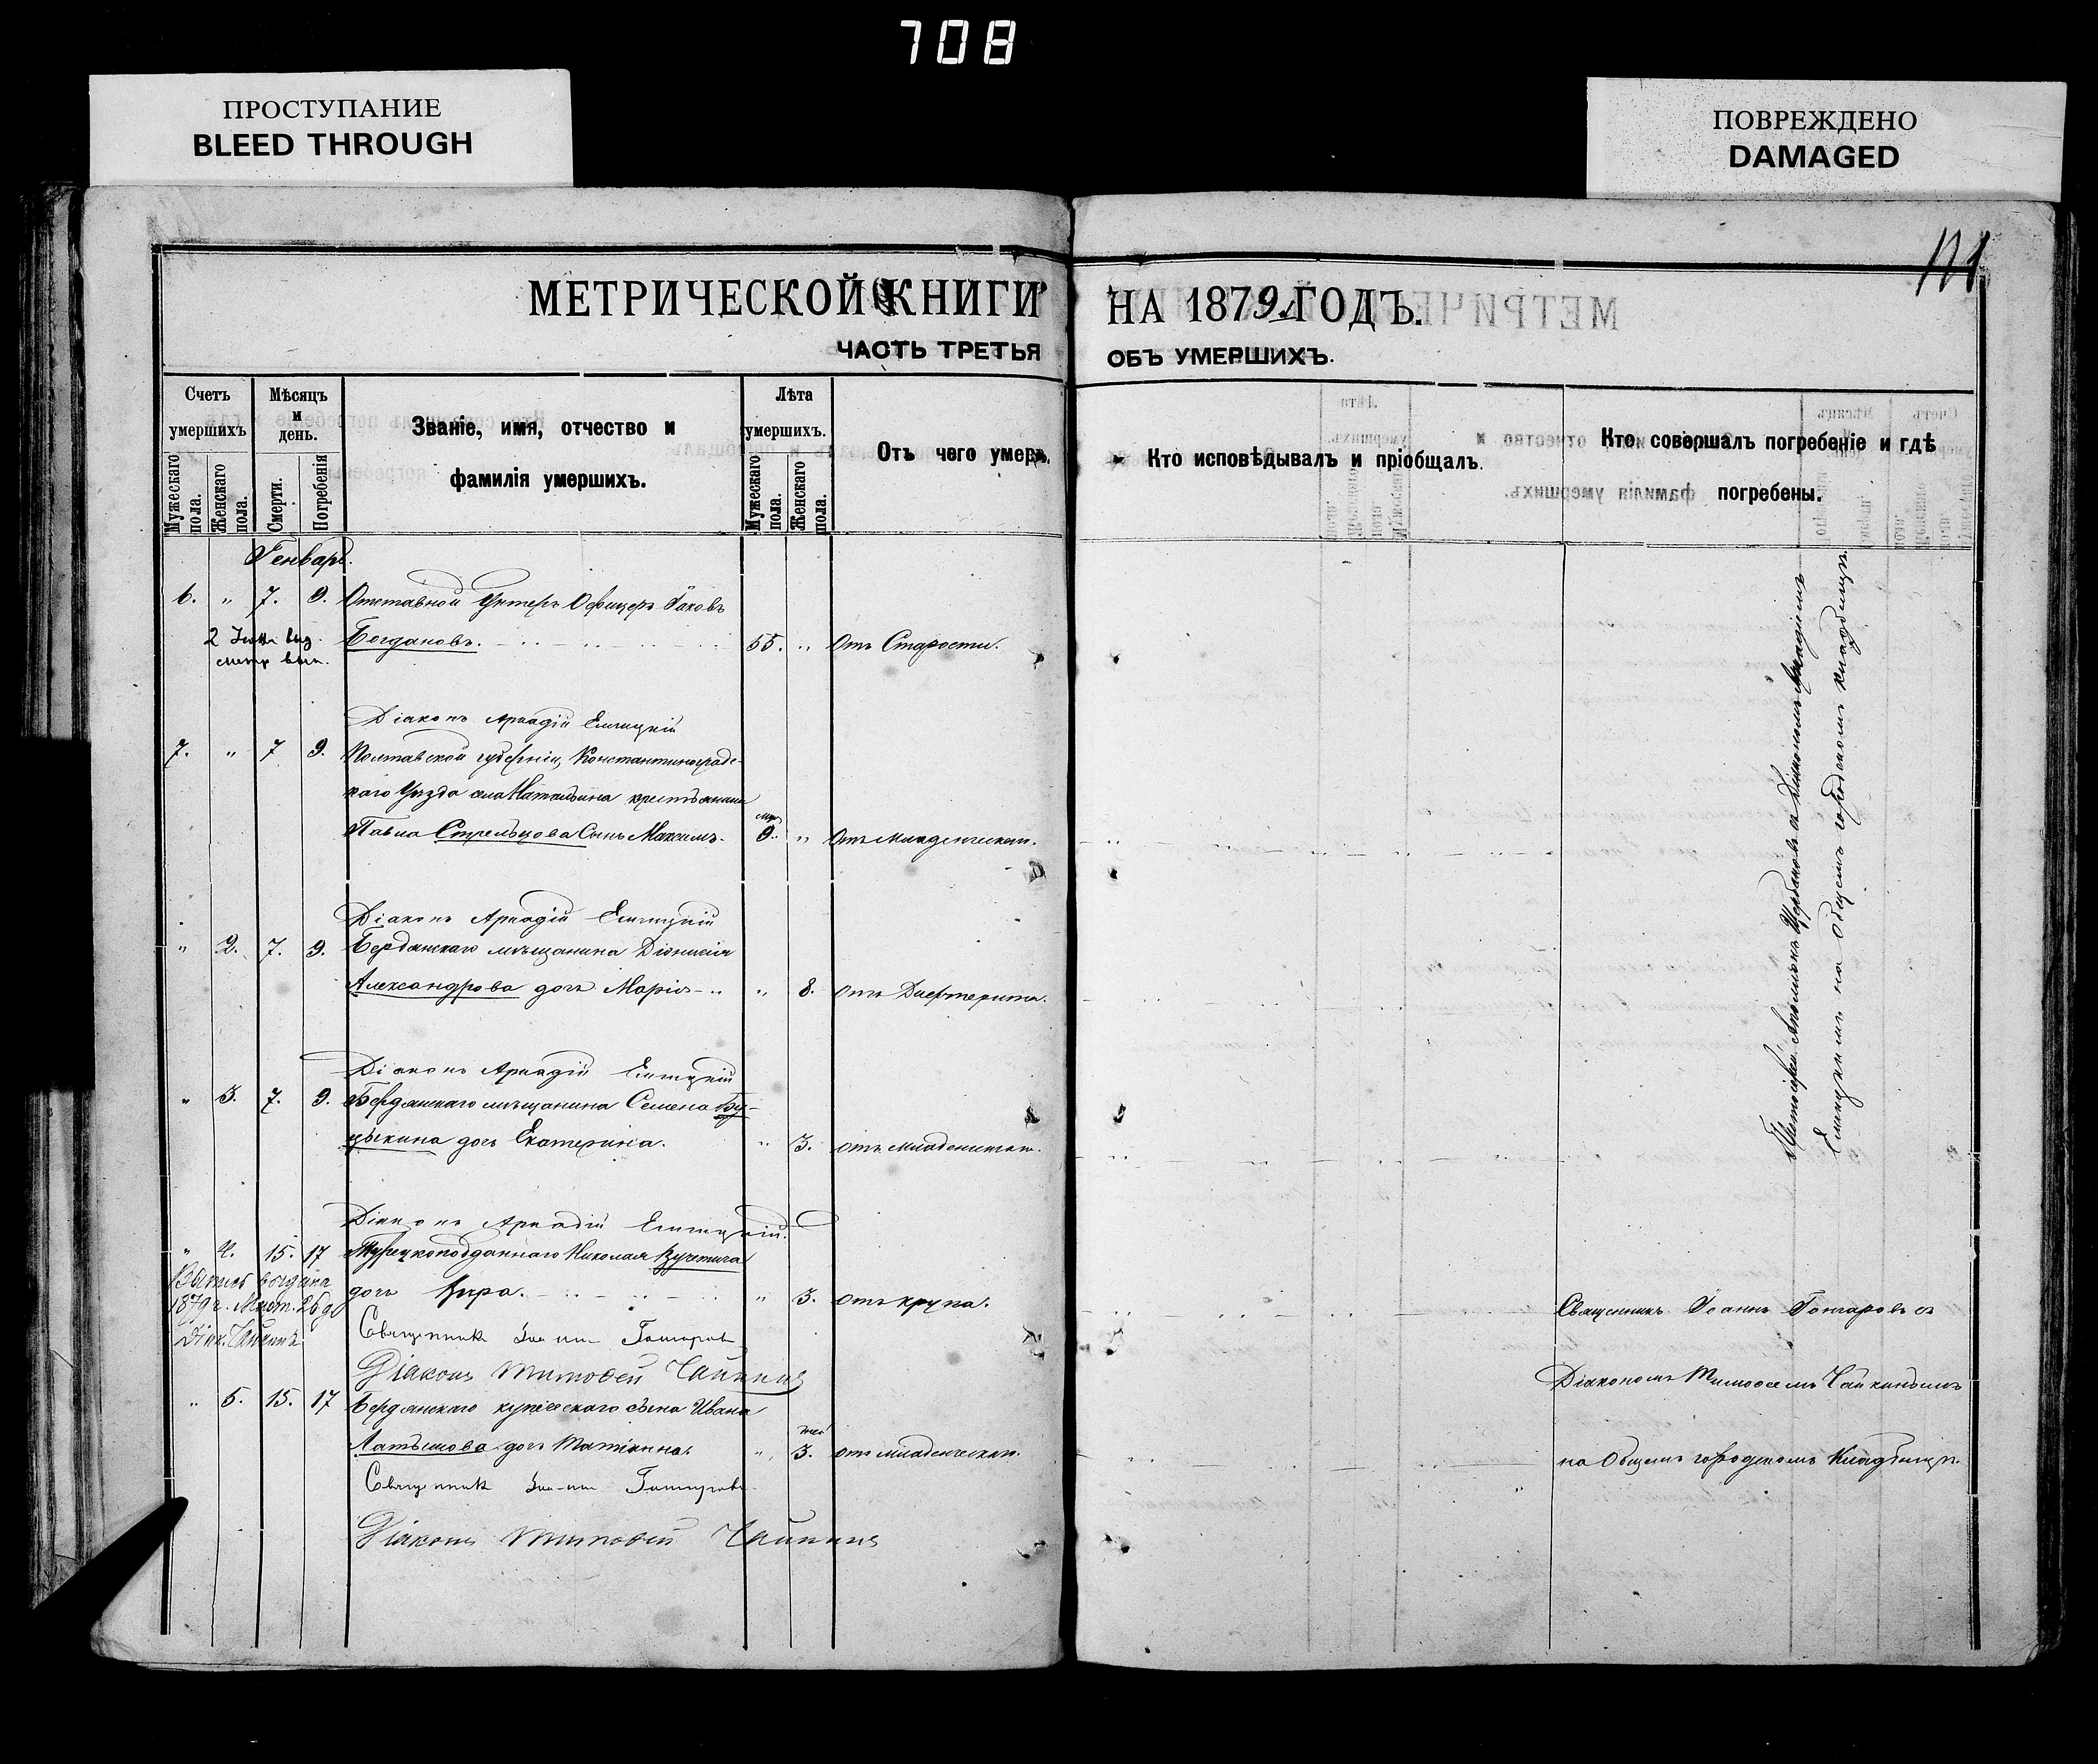 708
ПРОСТУПАНИЕ
BLEED THROUGH
ПОВРЕЖДЕНО
DAMAGED
МЕТРИЧЕСКОЙ КНИГИ НА 1879 ГОДЪ.
ЧАСТЬ ТРЕТЬЯ ОБЪ УМЕРШИХЪ.
Счетъ умершихъ.
Мужескаго пола.
Женскаго пола.
Мѣсяцъ и день.
Смерти.
Погребенія
Званіе, имя, отчество и фамилія умершихъ.
Лѣта умершихъ.
Мужескаго пола.
Женскаго пола.
Отъ чего умеръ.
Кто исповѣдывалъ и пріобщалъ.
Кто совершалъ погребеніе и гдѣ погребены.
Генварь.
6. " 7. 9. Отставной Унтеръ Офицеръ Іаковъ
Богдановъ. 55. " Отъ Старости.
Діаконъ Аркадій
7. " 7 9. Полтавской губерніи, Константиноградс-
каго Уѣзда села Натальина крестьянина
Павла Стрельцова Сынъ Максимъ. 9. " Отъ Младенческой.
Діаконъ Аркадій
" 2. 7. 9. Бердянскаго мѣщанина Діонисія
Александрова дочь Марія " 8. Отъ Дифтерита.
Діаконъ Аркадій
" 3. 7. 9. Бердянскаго мѣщанина Семена Бу-
цыкина дочь Екатерина. " 3. отъ младенческой.
Діаконъ Аркадій
" 4. 15. 17 Турецкоподданнаго Николая Вучетича
дочь Кира. " 3. отъ крупа.
1879 г.
Священникъ Іоаннъ Гончаровъ
Діаконъ Тимофей Чайкинъ
" 5. 15. 17 Бердянскаго купеческаго сына Ивана
Латышова дочь Татіанна. " 3. отъ младенческой.
Священникъ Іоаннъ Гончаровъ
Діаконъ Тимофей Чайкинъ
на общемъ городскомъ кладбищѣ
Священникъ Іоаннъ Гончаровъ съ
Діакономъ Тимофеемъ Чайкинымъ
на Общемъ городскомъ Кладбищѣ.